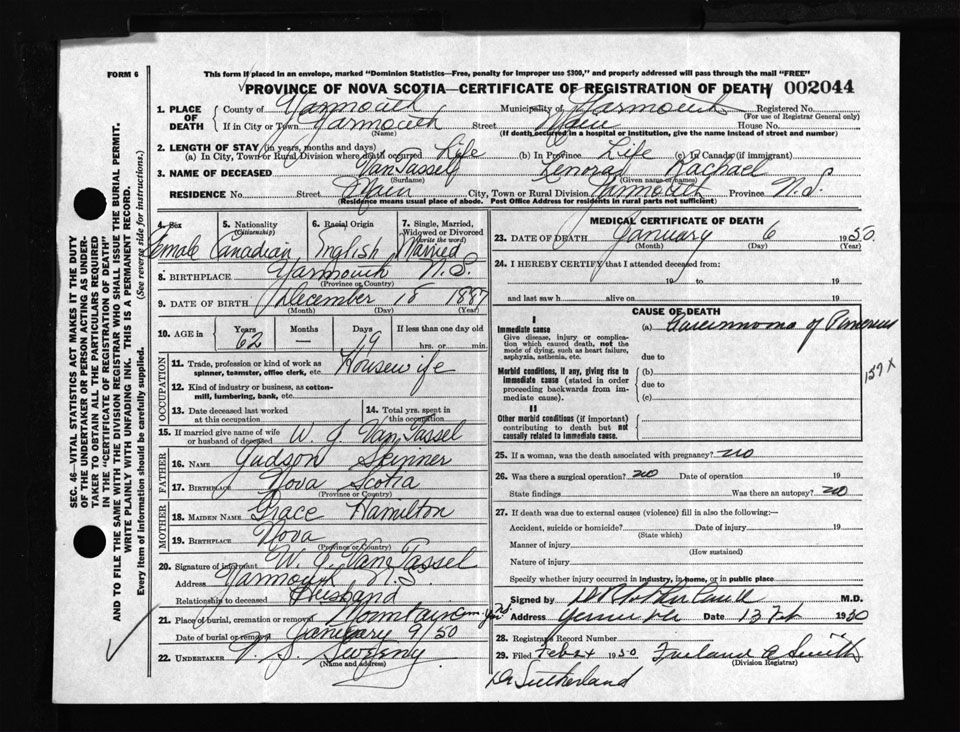 FORM 6
This form if placed in an envelope, marked "Dominion Statistics—Free, penalty for improper use $300," and properly addressed will pass through the mail "FREE"
PROVINCE OF NOVA SCOTIA—CERTIFICATE OF REGISTRATION OF DEATH 002044
1. PLACE OF DEATH
County of Yarmouth Municipality of Yarmouth Registered No.
(For use of Registrar General only)
If in City or Town Yarmouth Street Main House No.
(Name) (If death occurred in a hospital or institution, give the name instead of street and number)
2. LENGTH OF STAY (in years, months and days)
(a) In City, Town or Rural Division where death occurred Life (b) In Province Life (c) In Canada (if immigrant)
3. NAME OF DECEASED Van Tassel Lenora Rachael
(Surname) (Given name or names)
RESIDENCE No. Street Main City, Town or Rural Division Yarmouth Province N.S.
(Residence means usual place of abode. Post Office Address for residents in rural parts not sufficient)
4. Sex 5. Nationality (Citizenship) 6. Racial Origin 7. Single, Married, Widowed or Divorced (write the word)
Female Canadian English Married
8. BIRTHPLACE Yarmouth N.S.
(Province or Country)
9. DATE OF BIRTH December 18 1887
(Month) (Day) (Year)
10. AGE in Years Months Days If less than one day old
62 — 19 hrs. or min.
OCCUPATION
11. Trade, profession or kind of work as spinner, teamster, office clerk, etc. Housewife
12. Kind of industry or business, as cotton-mill, lumbering, bank, etc.
13. Date deceased last worked at this occupation
14. Total yrs. spent in this occupation
15. If married give name of wife or husband of deceased W. J. Van Tassel
FATHER
16. NAME Judson Spinner
17. BIRTHPLACE Nova Scotia
(Province or Country)
MOTHER
18. MAIDEN NAME Grace Hamilton
19. BIRTHPLACE Nova
(Province or Country)
20. Signature of informant W. J. Van Tassel
Address Yarmouth N.S.
Relationship to deceased Husband
21. Place of burial, cremation or removal Mountain
Date of burial or removal January 9/50
22. UNDERTAKER V. S. Sweeny
(Name and address)
MEDICAL CERTIFICATE OF DEATH
23. DATE OF DEATH January 6 1950
(Month) (Day) (Year)
24. I HEREBY CERTIFY that I attended deceased from:
19 to 19
and last saw h alive on 19
CAUSE OF DEATH
I
Immediate cause (a) Carcinoma of Pancreas
Give disease, injury or complication which caused death, not the mode of dying, such as heart failure, asphyxia, asthenia, etc.
due to
157x
Morbid conditions, if any, giving rise to immediate cause (stated in order proceeding backwards from immediate cause).
(b)
due to
(c)
II
Other morbid conditions (if important) contributing to death but not causally related to immediate cause.
25. If a woman, was the death associated with pregnancy? no
26. Was there a surgical operation? no Date of operation 19
State findings Was there an autopsy? no
27. If death was due to external causes (violence) fill in also the following:—
Accident, suicide or homicide? Date of injury 19
(State which)
Manner of injury
(How sustained)
Nature of injury
Specify whether injury occurred in industry, in home, or in public place
Signed by M.D.
Address Date 13 Feb 1950
28. Registrar's Record Number
29. Filed Feb 24 1950 Freeland A Smith
(Division Registrar)
Dr Sutherland
SEC. 46—VITAL STATISTICS ACT MAKES IT THE DUTY
OF THE UNDERTAKER OR PERSON ACTING AS UNDER-
TAKER TO OBTAIN ALL THE PARTICULARS REQUIRED
IN THE "CERTIFICATE OF REGISTRATION OF DEATH"
AND TO FILE THE SAME WITH THE DIVISION REGISTRAR WHO SHALL ISSUE THE BURIAL PERMIT.
WRITE PLAINLY WITH UNFADING INK. THIS IS A PERMANENT RECORD.
Every item of information should be carefully supplied. (See reverse side for instructions.)